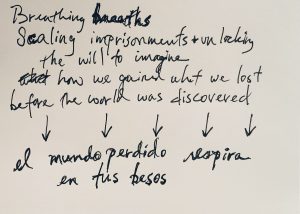 Breathing breaths
Scaling imprisonments + unlocking
the will to imagine
how we gained what we lost
before the world was discovered
el mundo perdido respira
en tus besos